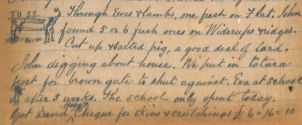 TU 22
Through Ewes & lambs, one pest on Flat. John
found 5 or 6 fresh ones on Widerups & ridges.
Cut up & salted pig, a good deal of lard.
John digging about house. We put in totara
post for brown gate to shut against. Eva at school
after 5 weeks. The school only opent today.
Got David's Cheque for skins & crutchings £6-16-10